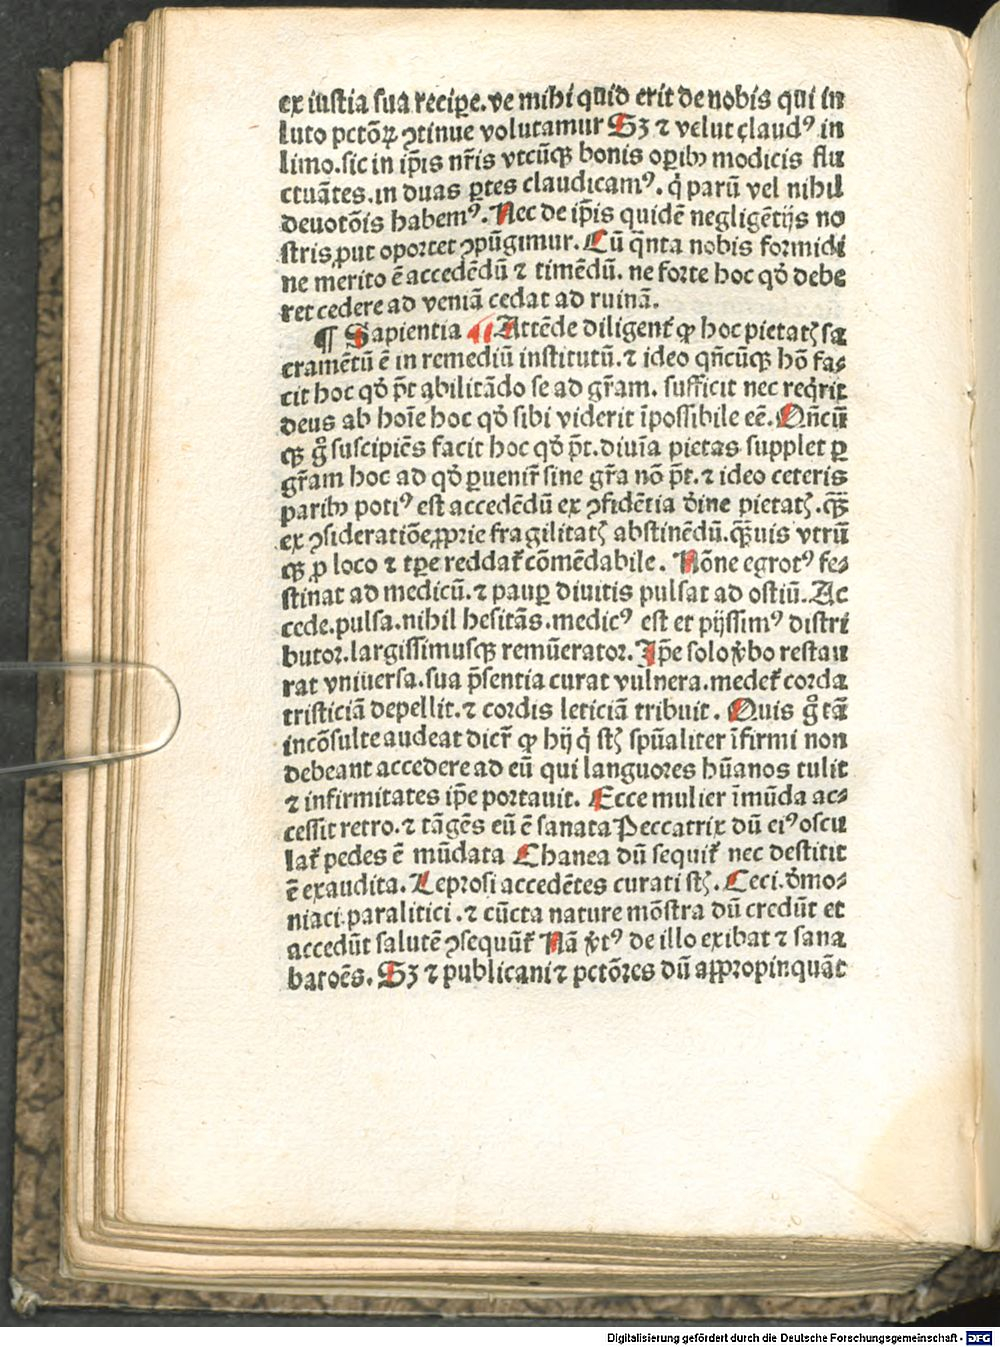 ex iustia sua recipe. ve mihi quid erit de nobis qui in
luto pctōꝝ ꝯtinue volutamur Sꝫ ⁊ velut claudꝰ in
limo. sic in ip̄is nr̄is vtcūqꝫ bonis oꝑibꝫ modicis flu
ctuātes. in duas ꝑtes claudicamꝰ. q̇ parū vel nihil
deuotōis habemꝰ. Nec de ip̄is quidē negligētijs no
stris ꝓut oportet ꝯpūgimur. Cū q̄nta nobis formidi
ne merito ē accedēdū ⁊ timēdū. ne forte hoc qď debe
ret cedere ad veniā cedat ad ruinā.
¶ Sapientia ¶ Attēde diligent᷑ ꝙ hoc pietatꝭ sa
cramētū ē in remediū institutū. ⁊ ideo qn̄cūqꝫ hō fa⸗
cit hoc qď p̄t abilitādo se ad gr̄am. sufficit nec req̇rit
deus ab hoīe hoc qď sibi viderit īpossibile eē. Qn̄cū
qꝫ gͦ suscipiēs facit hoc qď p̄t. diuīa pietas supplet ꝑ
gr̄am hoc ad qď ꝑuenir̄ sine gr̄a nō p̄t. ⁊ ideo ceteris
paribꝫ potiꝰ est accedēdū ex ꝯfidētia ďine pietatꝭ. qꝫ̄
ex ꝯsideratiōe ꝓprie fragilitatꝭ abstinēdū. qꝫ̄uis vtrū
qꝫ ꝓ loco ⁊ tꝑe reddat᷑ cōmēdabile. Nōne egrotꝰ fe⸗
stinat ad medicū. ⁊ pauꝑ diuitis pulsat ad ostiū. Ac
cede. pulsa. nihil hesitās. medicꝰ est et pijssimꝰ distri
butor. largissimusqꝫ remūerator. Ip̄e solo v̇bo restau
rat vniuersa. sua p̄sentia curat vulnera. medet᷑ corda
tristiciā depellit. ⁊ cordis leticiā tribuit. Quis gͦ tā
incōsulte audeat dicr̄ ꝙ hij q̇ st̄ꝭ spūaliter īfirmi non
debeant accedere ad eū qui languores hūanos tulit
⁊ infirmitates ip̄e portauit. Ecce mulier īmūda ac⸗
cessit retro. ⁊ tāgēs eū ē sanata Peccatrix dū eiꝰ oscu
lat᷑ pedes ē mūdata Chanea dū sequit᷑ nec destitit
ē exaudita. Leprosi accedētes curati st̄ꝭ. Ceci. ďmo⸗
niaci. paralitici. ⁊ cūcta nature mōstra dū credūt et
accedūt salutē ꝯsequūt᷑ Nā v̇tꝰ de illo exibat ⁊ sana
bat oēs. Sꝫ ⁊ publicani ⁊ pctōres dū appropinquāt
Digitalisierung gefördert durch die Deutsche Forschungsgemeinschaft - DFG